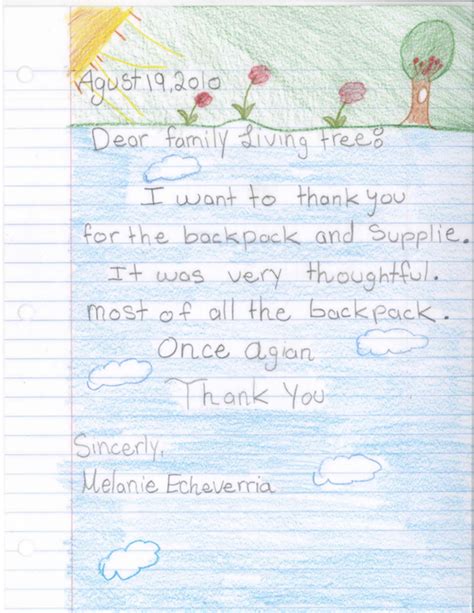 Agust 19, 2010
Dear family Living tree:
I want to thank you
for the backpack and Supplie.
It was very thoughtful.
most of all the backpack.
Once Agian
Thank You
Sincerly,
Melanie Echeverria